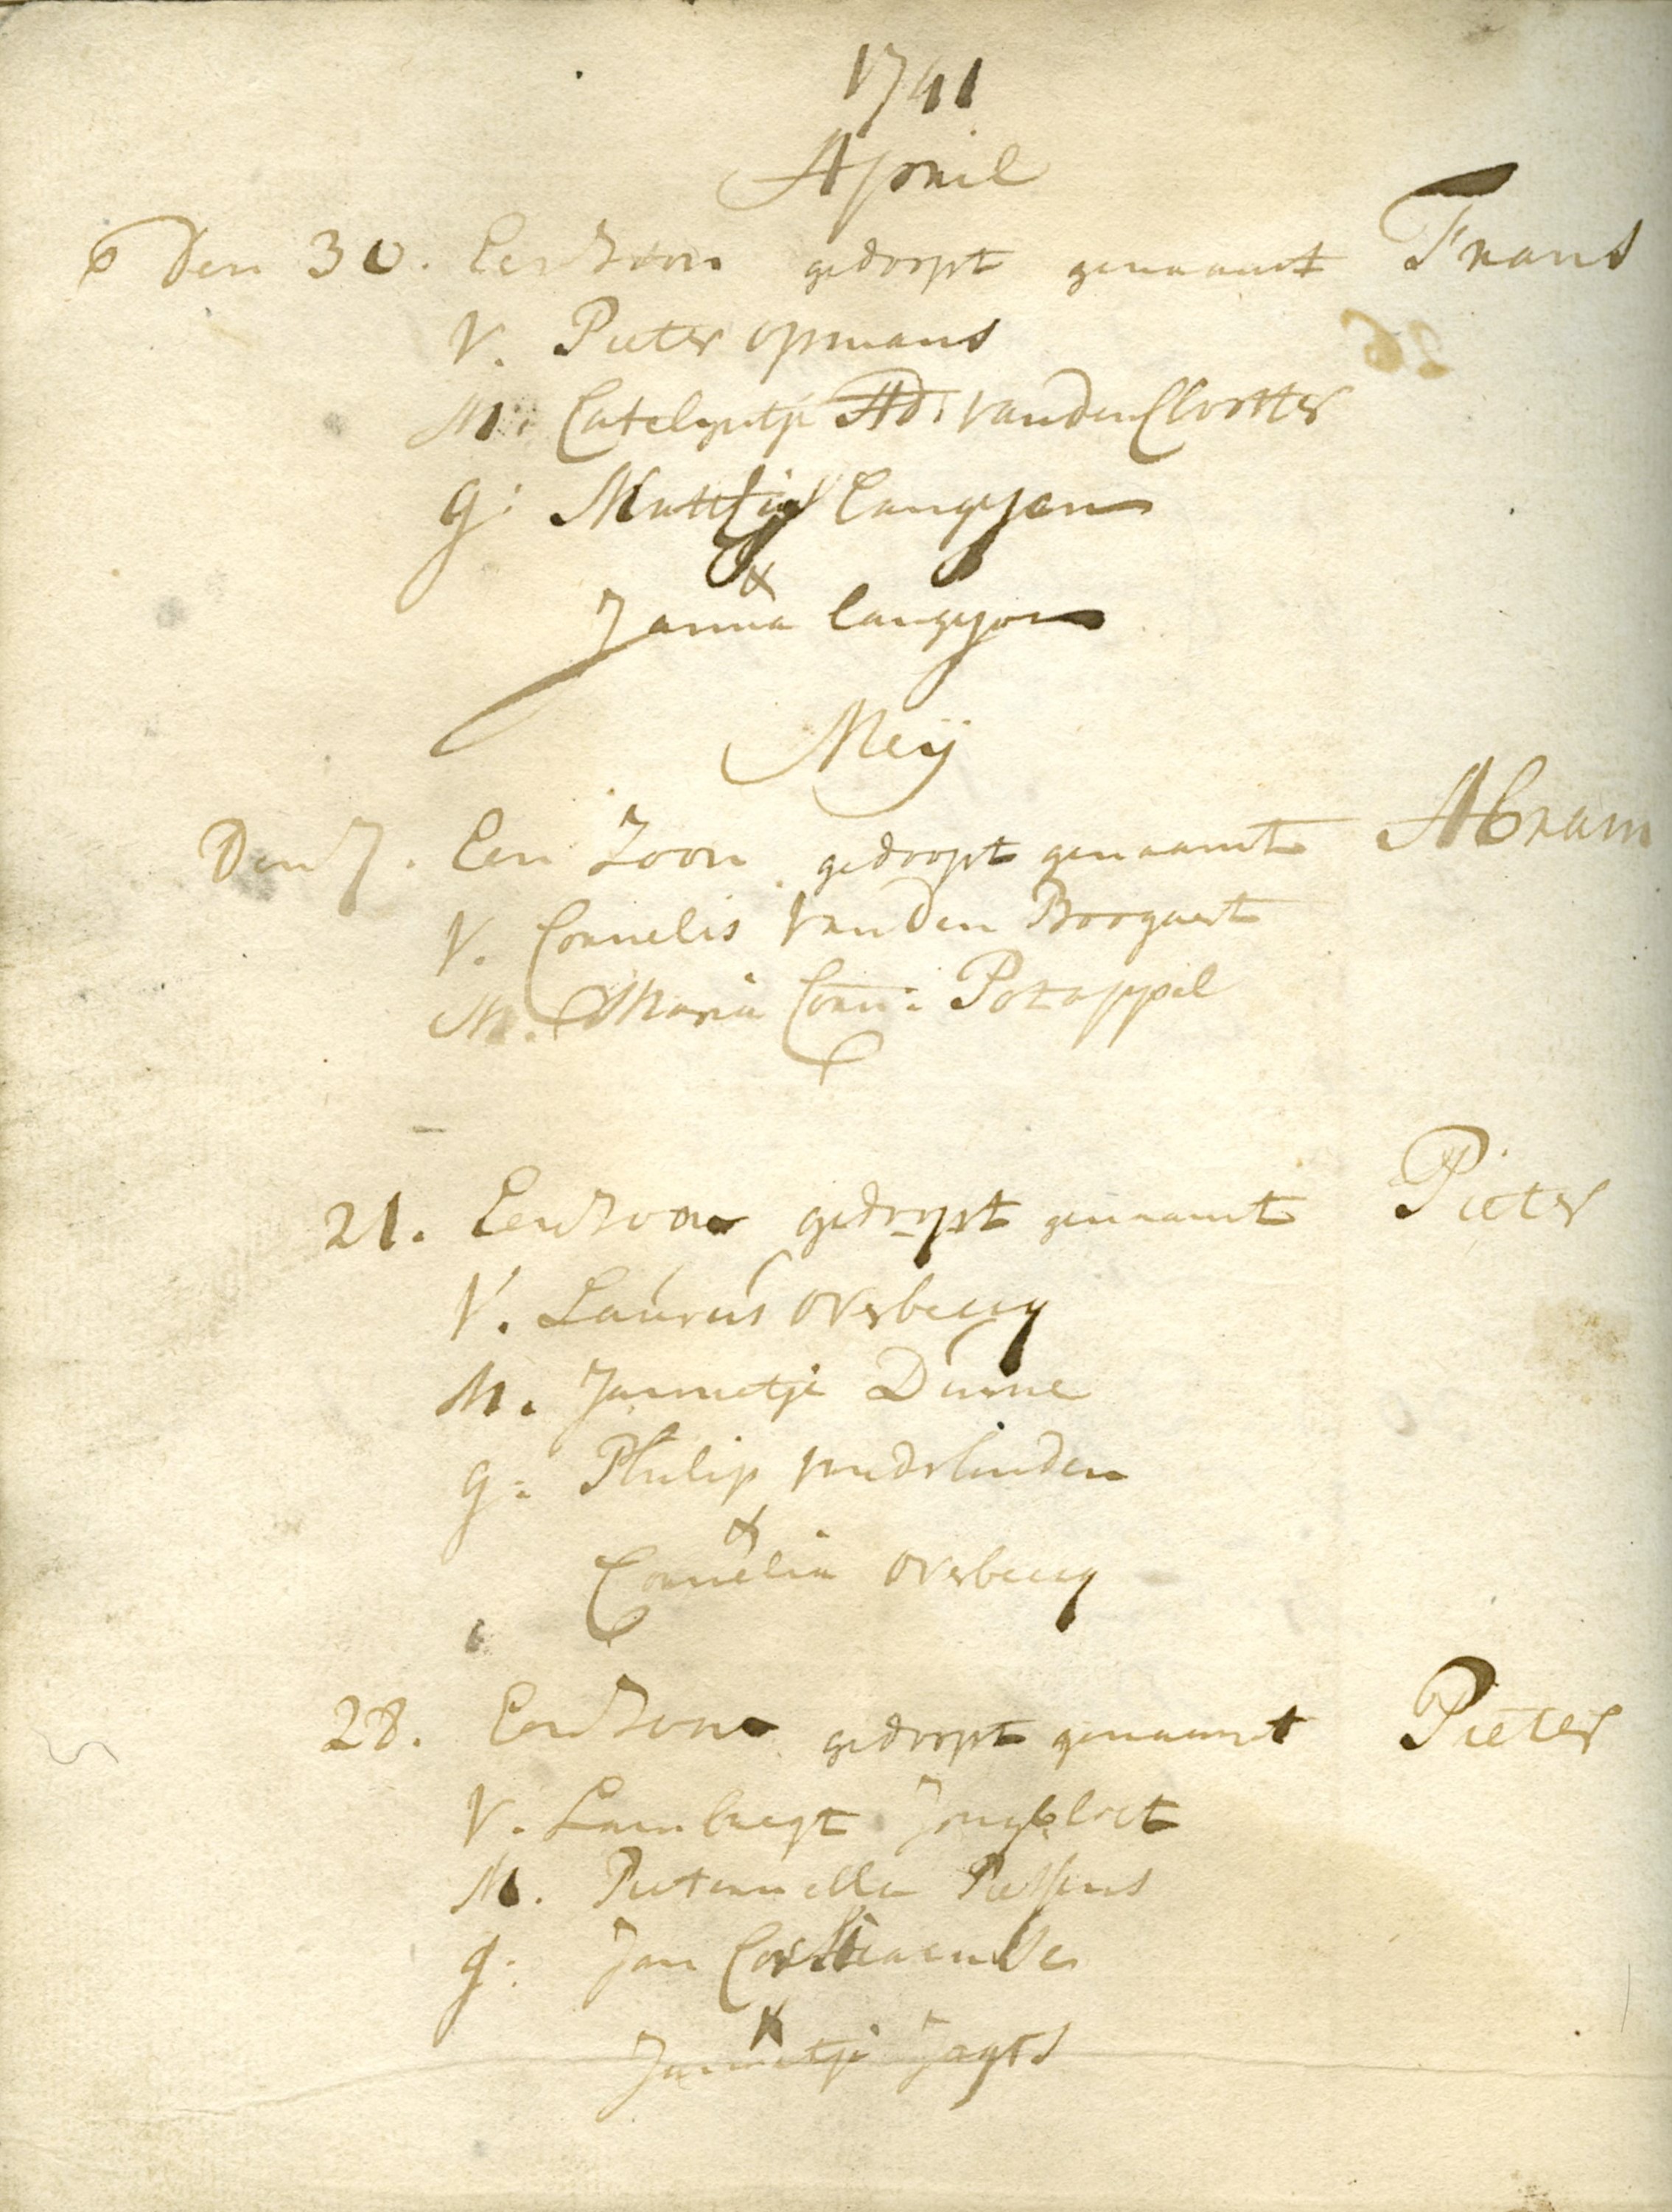 1741
April
Den 30. Een Zoon gedoopt genaamt Frans
V. Pieter Opmans
M. Catelyntje Ad: vanden Clooster
g: Matthijs Langejan
&
Janna Langejan
Meij
Den 7. Een Zoon gedoopt genaamt Abram
V. Cornelis Vanden Boogaert
M. Maria Corn: Potappel
21. Een Zoon gedoopt genaamt Pieter
V. Laurus Overbeecq
M. Jannetje Durne
g: Philip vnderlinden
&
Cornelia Overbeecq
28. Een Zoon gedoopt genaamt Pieter
V. Lambregt Jongbloet
M. Pieternella
g: Jan
&
Jannetje Jagts